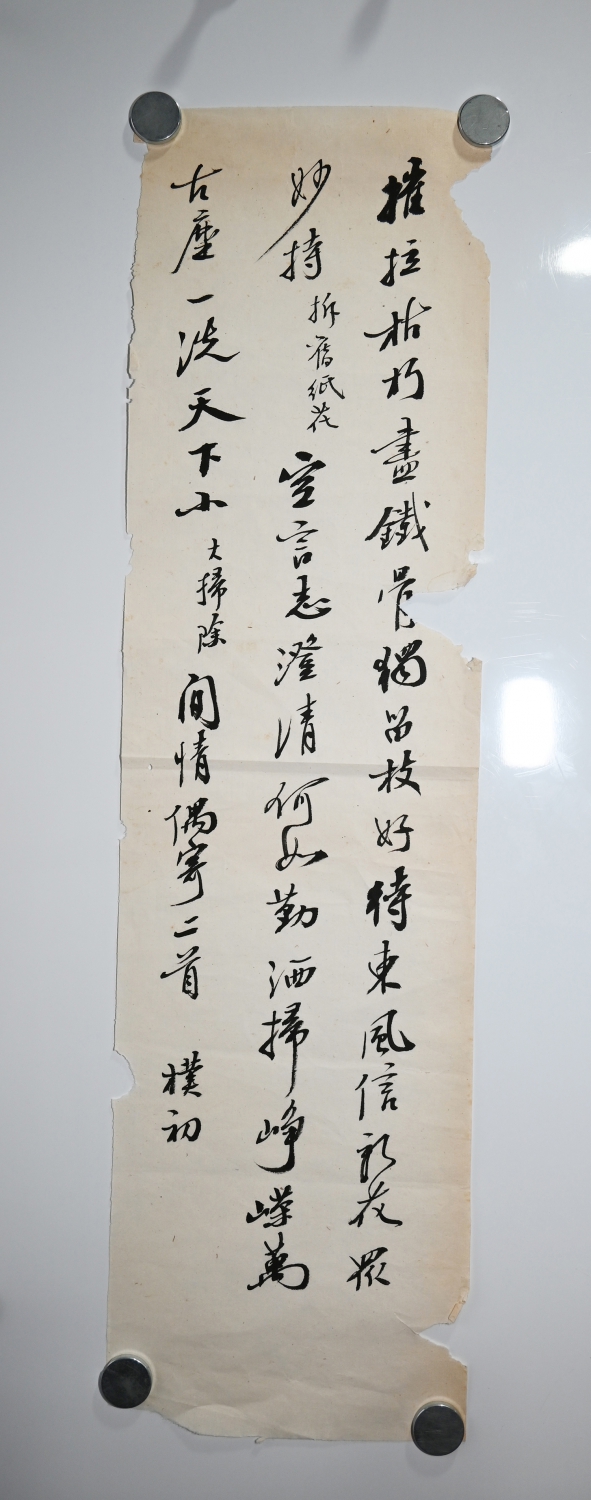 摧拉枯朽盡鐵骨獨留枝好待東風信新花眾
妙持拆舊紙花空言志澄清何如勤洒掃崢嶸萬
古塵一洗天下小大掃除閒情偶寄二首 樸初